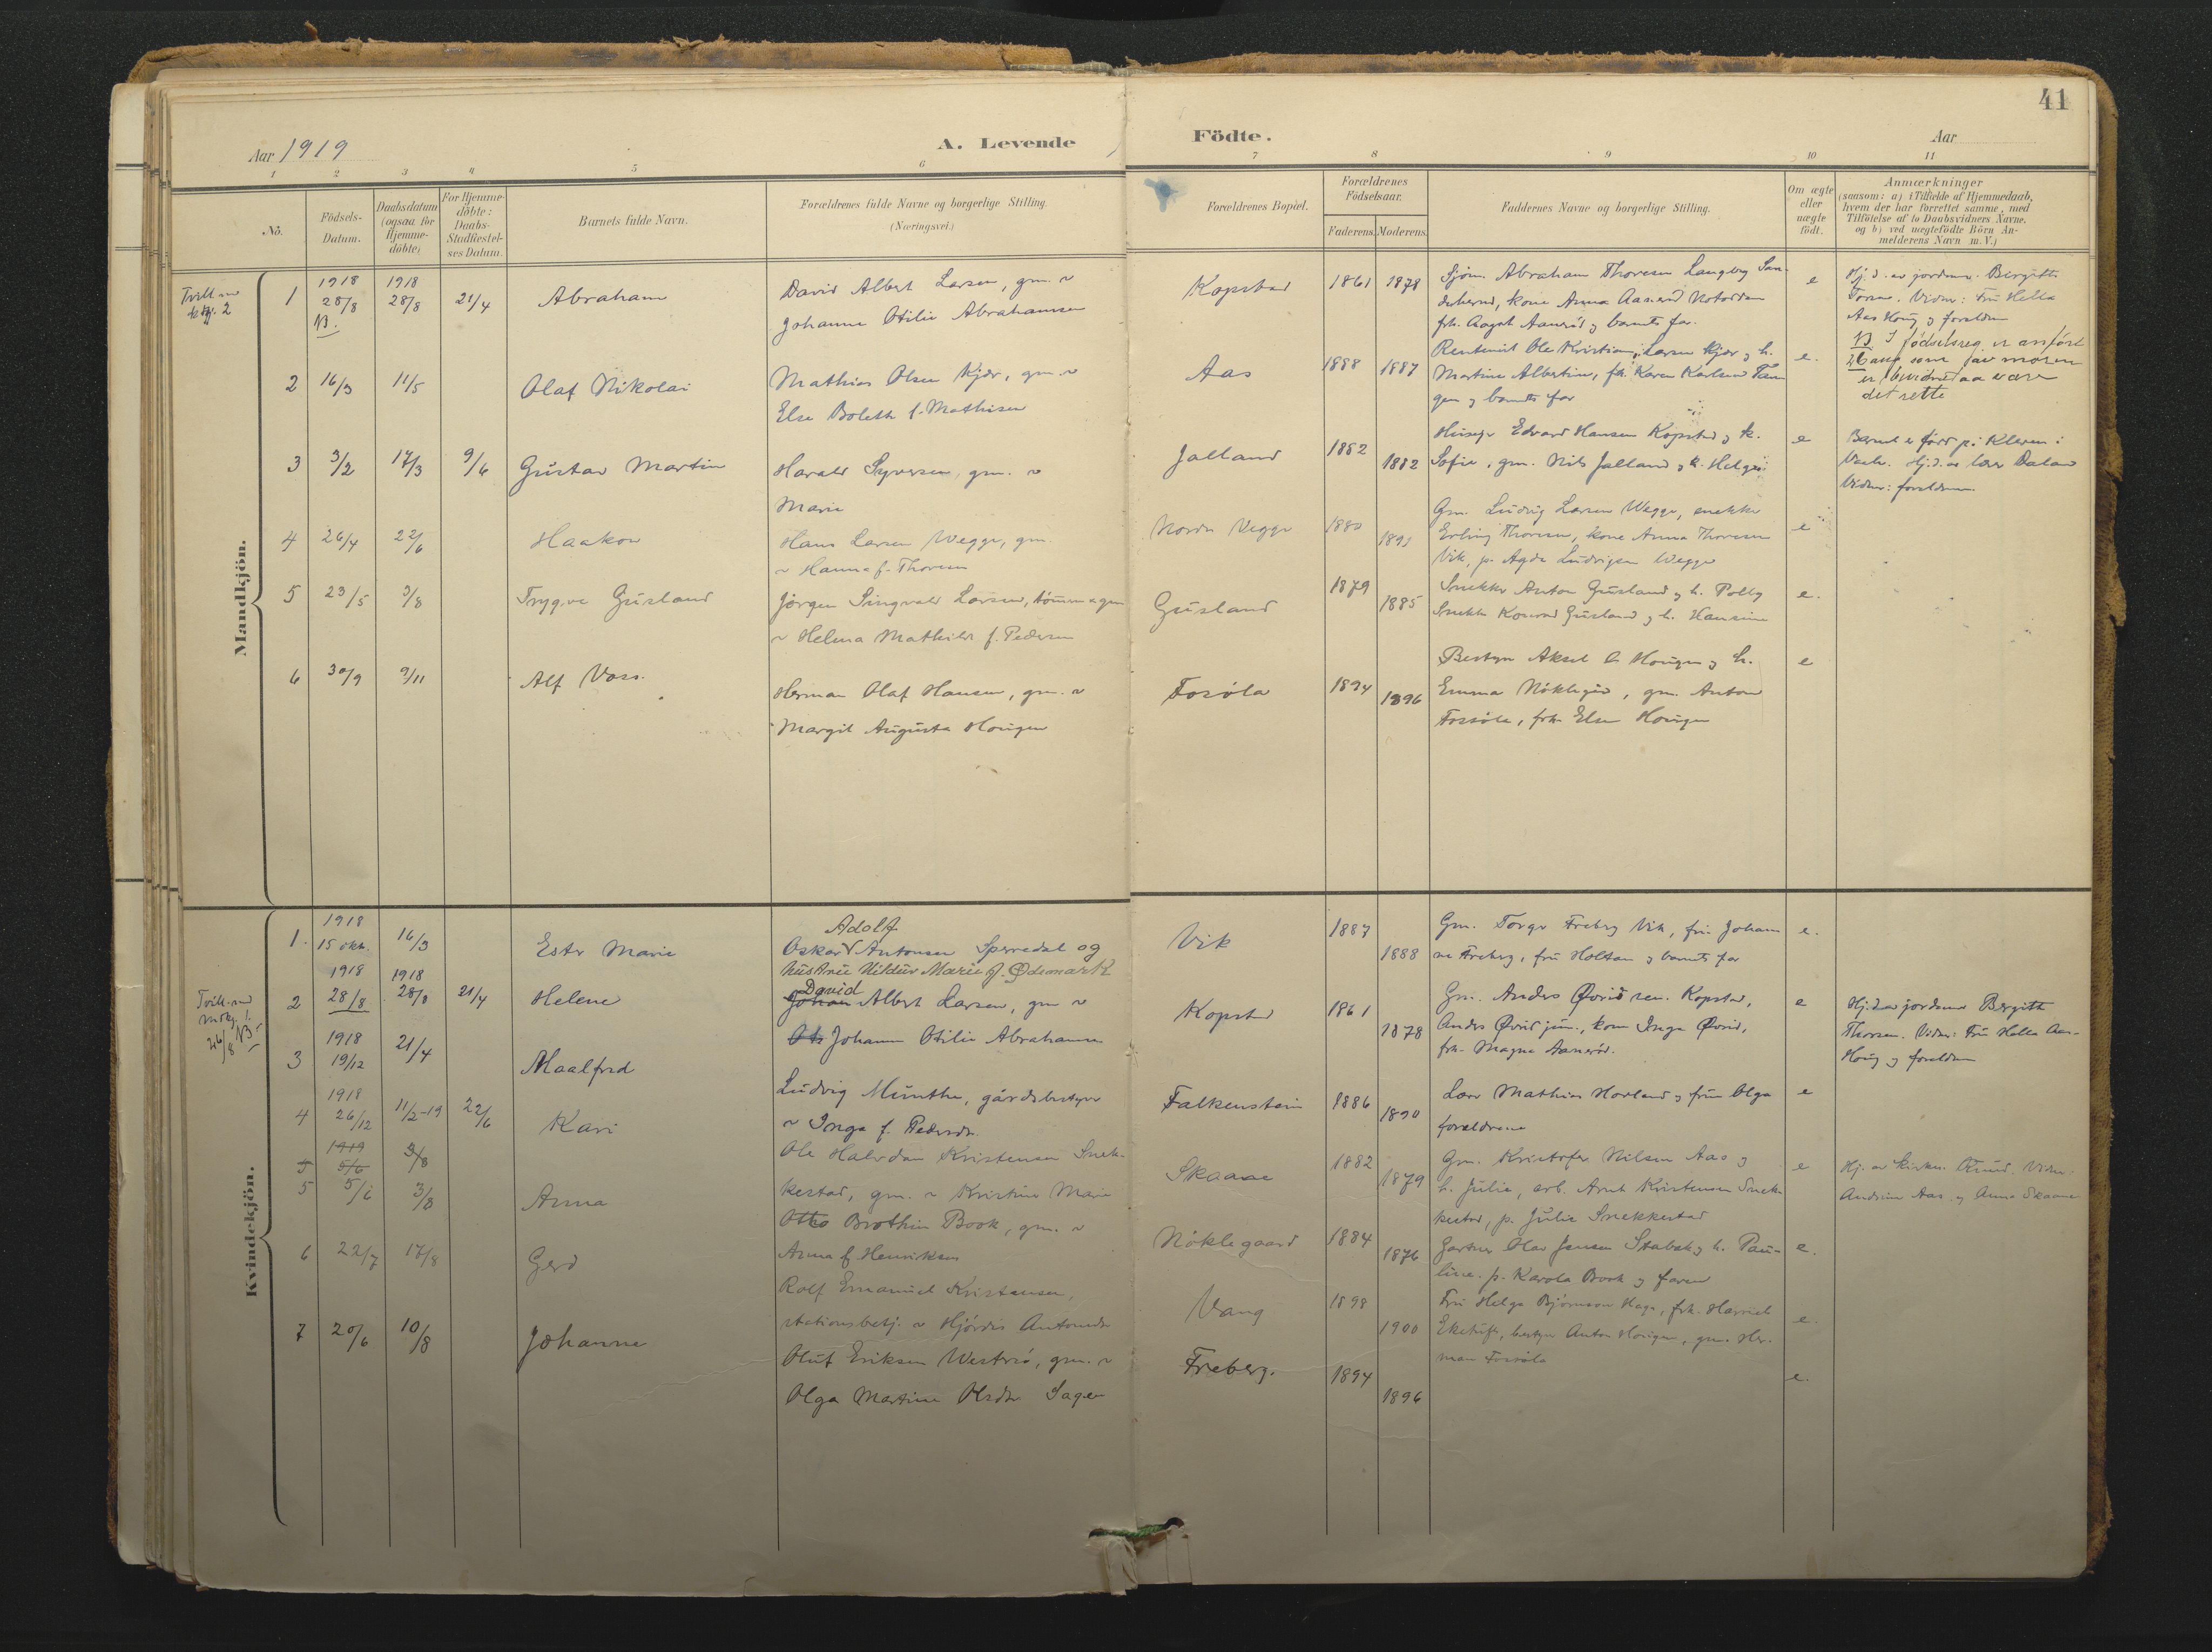 41
Aar 1919
A. Levende
Födte.
Aar
1 2 3 4 5 6 7 8 9 10 11
No.
Födsels-Datum.
Daabsdatum (ogsaa for Hjemme-döbte)
For Hjemme-döbte: Daabs-Stadfæstel-ses Datum.
Barnets fulde Navn.
Forældrenes fulde Navne og borgerlige Stilling.
(Næringsvei.)
Forældrenes Bopæl.
Forældrenes Födselsaar.
Faderens. Moderens.
Faddernes Navne og borgerlige Stilling.
Om ægte eller uægte födt.
Anmærkninger
(saasom: a) i Tilfælde af Hjemmedaab,
hvem der har forrettet samme, med
Tilföielse af to Daabsvidners Navne.
og b) ved uægtefödte Börn An-
melderens Navn m. V.)
Mandkjön.
Tvill. m
2
1 1918 28/8 NB. 1918 28/8 21/4 Abraham
David Albert Larsen, gm. &
Johanne Otilie Abrahamsen
Kopstad 1861 1878
Sjöm. Abraham Thoresen Langby San-
deherred, kone Anna Aanerød Notodden
frk. Aagot Aanerød og barnets far.
e
Hj. d. av jordmor Bergitte
Vidner: Fru Hella
Aas Houg og forældre
NB I fødselsreg. er anført
26 aug. som
det rette
2 16/3 11/5 Olaf Nikolai
Mathias Olsen Kjær, gm. &
Else Bolette f. Mathisen
Aas 1888 1887
Rentenist Ole Kristian Larsen Kjær og h.
Martine Albertine, frk. Karen Karlsen Tan-
gen og barnets far
e.
3 3/2 17/3 9/6 Gustav Martin
Harald Syversen, gm. &
Marie
Jalland 1882 1882
Huseier Edvard Hansen Kopstad og k.
Sofie, gm. Nils Jalland og k. Helga
e
Barnet er født på Kleven i
Vaale. Hj. d. av lærer Daland
Vidner: forældrene.
4 26/4 22/6 Haakon
Hans Larsen Wegge, gm.
& Hanna f. Thoresen
Nordre Vegge 1880 1891
Gm. Ludvig Larsen Wegge, snekker
Erling Thoresen, kone Anna Thoresen
Vik, p. Agda Ludvigsen Wegge
e
5 23/5 3/8 Trygve Gusland
Jørgen Singvald Larsen, tømmermann
& Helena Mathilde f. Pedersen
Gusland 1879 1885
Snekker Anton Gusland og h. Polly
Snekker Konrad Gusland og h. Hansine
e.
6 30/9 9/11 Alf Voss.
Herman Olaf Hansen, gm. &
Margit Augusta Hougen
Fosøla 1894 1896
Bestyr. Aksel A. Hougen og h.
Emma Nøklegård, gm. Anton
Fossøla, frk. Else Hougen
e
Kvindekjön.
1. 1918 15 okt. 16/3 Ester Marie
Adolf
Oskar V Antonsen Sperredal og
hustru Hildur Marie f. Ødemark
Vik 1887 1888
Gm. Torger Freberg Vik, fru Johan-
ne Freberg, fru Holtan og barnets far
e.
Tvill. med
Mdkj. 1.
26/8 NB
2 1918 28/8 1918 28/8 21/4 Helene
David
Johan Albert Larsen, gm &
Johanne Otilie Abrahamsen
Kopstad 1861 1878
Gm. Anders Øvrid sen. Kopstad,
Anders Øvrid jun., kone Inga Øvrid,
frk. Magna Aanerød.
e
Hj. d. av jordmor Bergitte
Thorsen. Vidner: Fru Hella Aas-
Houg og forældre
3 1918 19/12 21/4 Maalfrid
Ludvig Munthe, gårdsbestyrer
& Inga f. Pedersdr.
Falkenstein 1886 1890
Lærer Mathias Hovland og frue Olga
forældrene
e
4 1918 26/12 11/2-19 22/6 Kari
Ole Halvdan Kristensen Snek-
kestad, gm. & Kristine Marie
Skaane 1882 1879
Gm. Kristofer Nilsen Aas og
h. Julie, arb. Arnt Kristensen Snek-
kestad, p. Julie Snekkestad
e
Hj. av kirkes. Vidner:
Andrine Aas og Anna Skaane
5 1919 5/6 3/8
5 5/6 3/8 Anna
Otto Brothin Book, gm. &
Anna f. Henriksen
Nöklegaard 1884 1876
Gartner Olav Jensen Stabek og h. Pau-
line. p. Karola Book og faren
e.
6 22/7 17/8 Gerd
Rolf Emanuel Kristensen,
stationsbetj. & Hjördis Antonsdr
Vang 1898 1900
Fru Helga Bjørnson Haga, frk. Harriet
Eketuft, bestyr. Anton Hougen, gm. Her-
man Fossøla
e.
7 20/6 10/8 Johanne
Oluf Eriksen Westrø, gm. &
Olga Martine Olsdtr Sagen
Freberg. 1894 1896
e.